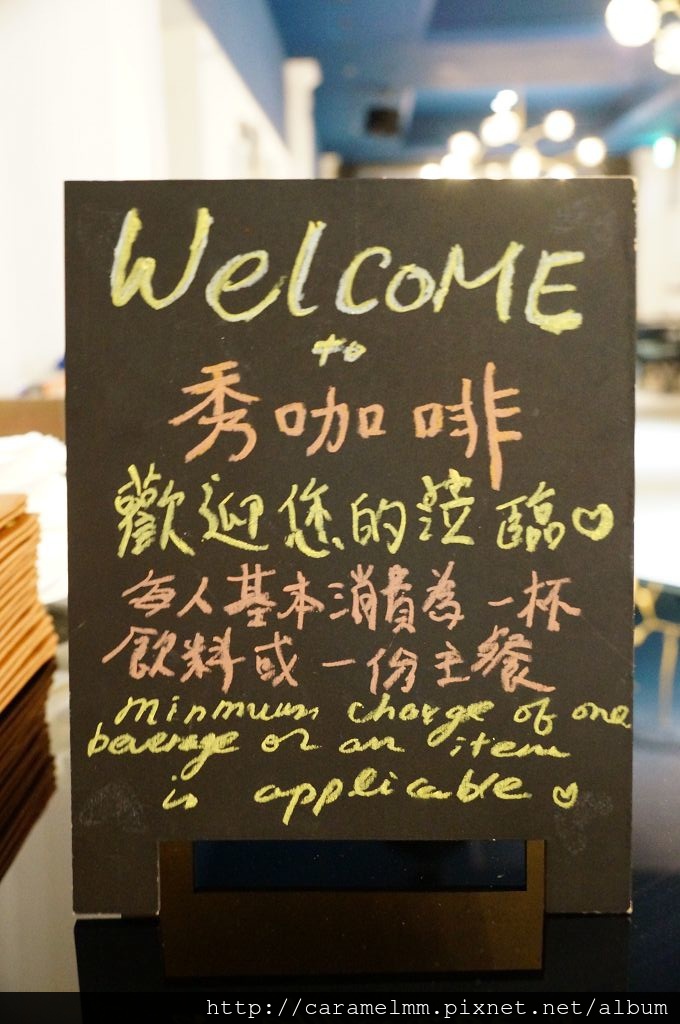 Welcome
to
秀咖啡
歡迎您的蒞臨♡
每人基本消費為一杯
飲料或一份主餐
Minmum charge of one
beverage or an item
is applicable ♡
http://caramelmm.pixnet.net/album